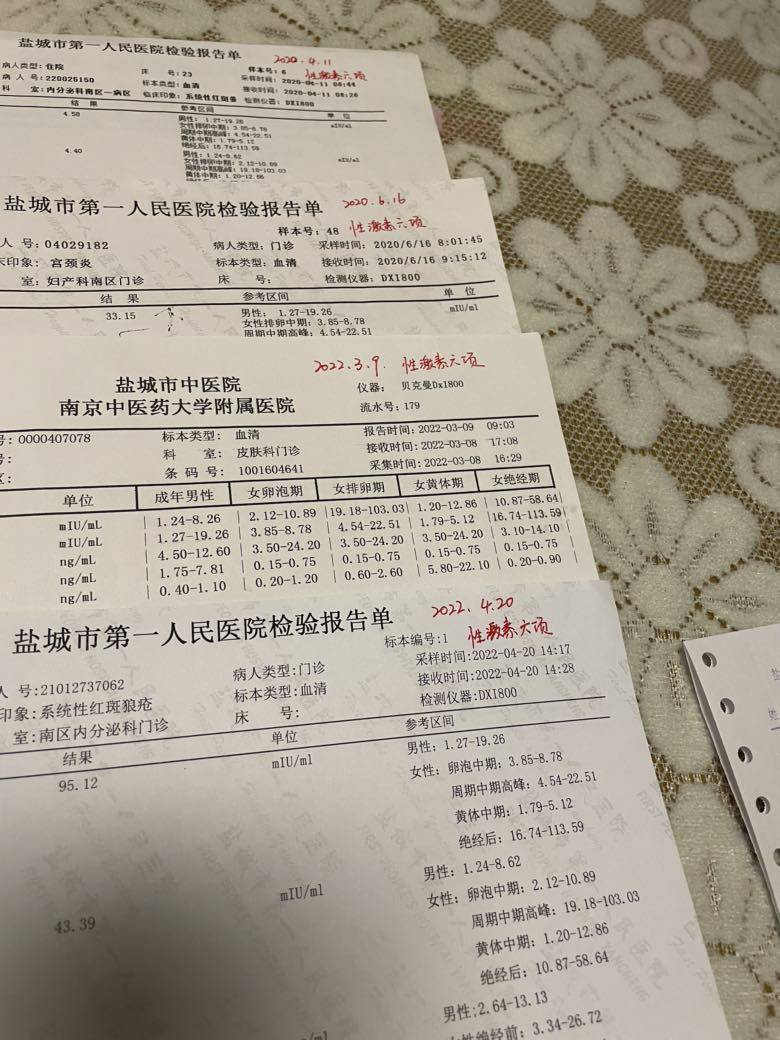 盐城市第一人民医院检验报告单
2020.4.11
病人类型: 住院
床 号: 23
样本号: 6
性激素六项
病 人 号: 220025150
标本类型: 血清
科 室: 内分泌科南区一病区
临床印象: 系统性红斑狼
检测仪器: DXI800
结 果
参考区间
单 位
4.50
男性: 1.27-19.26
mIU/ml
女性排卵中期: 3.85-8.78
周期中期高峰: 4.54-22.51
黄体中期: 1.79-5.12
绝经后: 16.74-113.59
4.40
男性: 1.24-8.62
mIU/ml
女性排卵中期: 2.12-10.89
周期中期高峰: 19.18-103.03
黄体中期: 1.20-12.86
盐城市第一人民医院检验报告单
2020.6.16
样本号: 48
性激素六项
人 号: 04029182
病人类型: 门诊
采样时间: 2020/6/16 8:01:45
床印象: 宫颈炎
标本类型: 血清
接收时间: 2020/6/16 9:15:12
室: 妇产科南区门诊
床 号:
检测仪器: DXI800
结 果
参考区间
单 位
33.15
男性: 1.27-19.26
mIU/ml
女性排卵中期: 3.85-8.78
周期中期高峰: 4.54-22.51
2022.3.9. 性激素六项
盐城市中医院
仪器: 贝克曼DxI800
南京中医药大学附属医院
流水号: 179
号: 0000407078
标本类型: 血清
报告时间: 2022-03-09 09:03
号:
科 室: 皮肤科门诊
接收时间: 2022-03-08 17:08
区:
条 码 号: 1001604641
采集时间: 2022-03-08 16:29
单位 成年男性 女卵泡期 女排卵期 女黄体期 女绝经期
mIU/mL 1.24-8.26 2.12-10.89 19.18-103.03 1.20-12.86 10.87-58.64
mIU/mL 1.27-19.26 3.85-8.78 4.54-22.51 1.79-5.12 16.74-113.59
ng/mL 4.50-12.60 3.50-24.20 3.50-24.20 3.50-24.20 3.10-14.10
ng/mL 1.75-7.81 0.15-0.75 0.15-0.75 0.15-0.75 0.15-0.75
ng/mL 0.40-1.10 0.20-1.20 0.60-2.60 5.80-22.10 0.20-0.90
盐城市第一人民医院检验报告单
2022.4.20
标本编号:1
性激素六项
人 号:21012737062
病人类型:门诊
采样时间:2022-04-20 14:17
印象:系统性红斑狼疮
标本类型:血清
接收时间:2022-04-20 14:28
室:南区内分泌科门诊
床 号:
检测仪器:DXI800
结果
单位
参考区间
95.12
mIU/ml
男性: 1.27-19.26
女性: 卵泡中期: 3.85-8.78
周期中期高峰: 4.54-22.51
黄体中期: 1.79-5.12
绝经后: 16.74-113.59
43.39
mIU/ml
男性: 1.24-8.62
女性: 卵泡中期: 2.12-10.89
周期中期高峰: 19.18-103.03
黄体中期: 1.20-12.86
绝经后: 10.87-58.64
男性:2.64-13.13
女性绝经前: 3.34-26.72